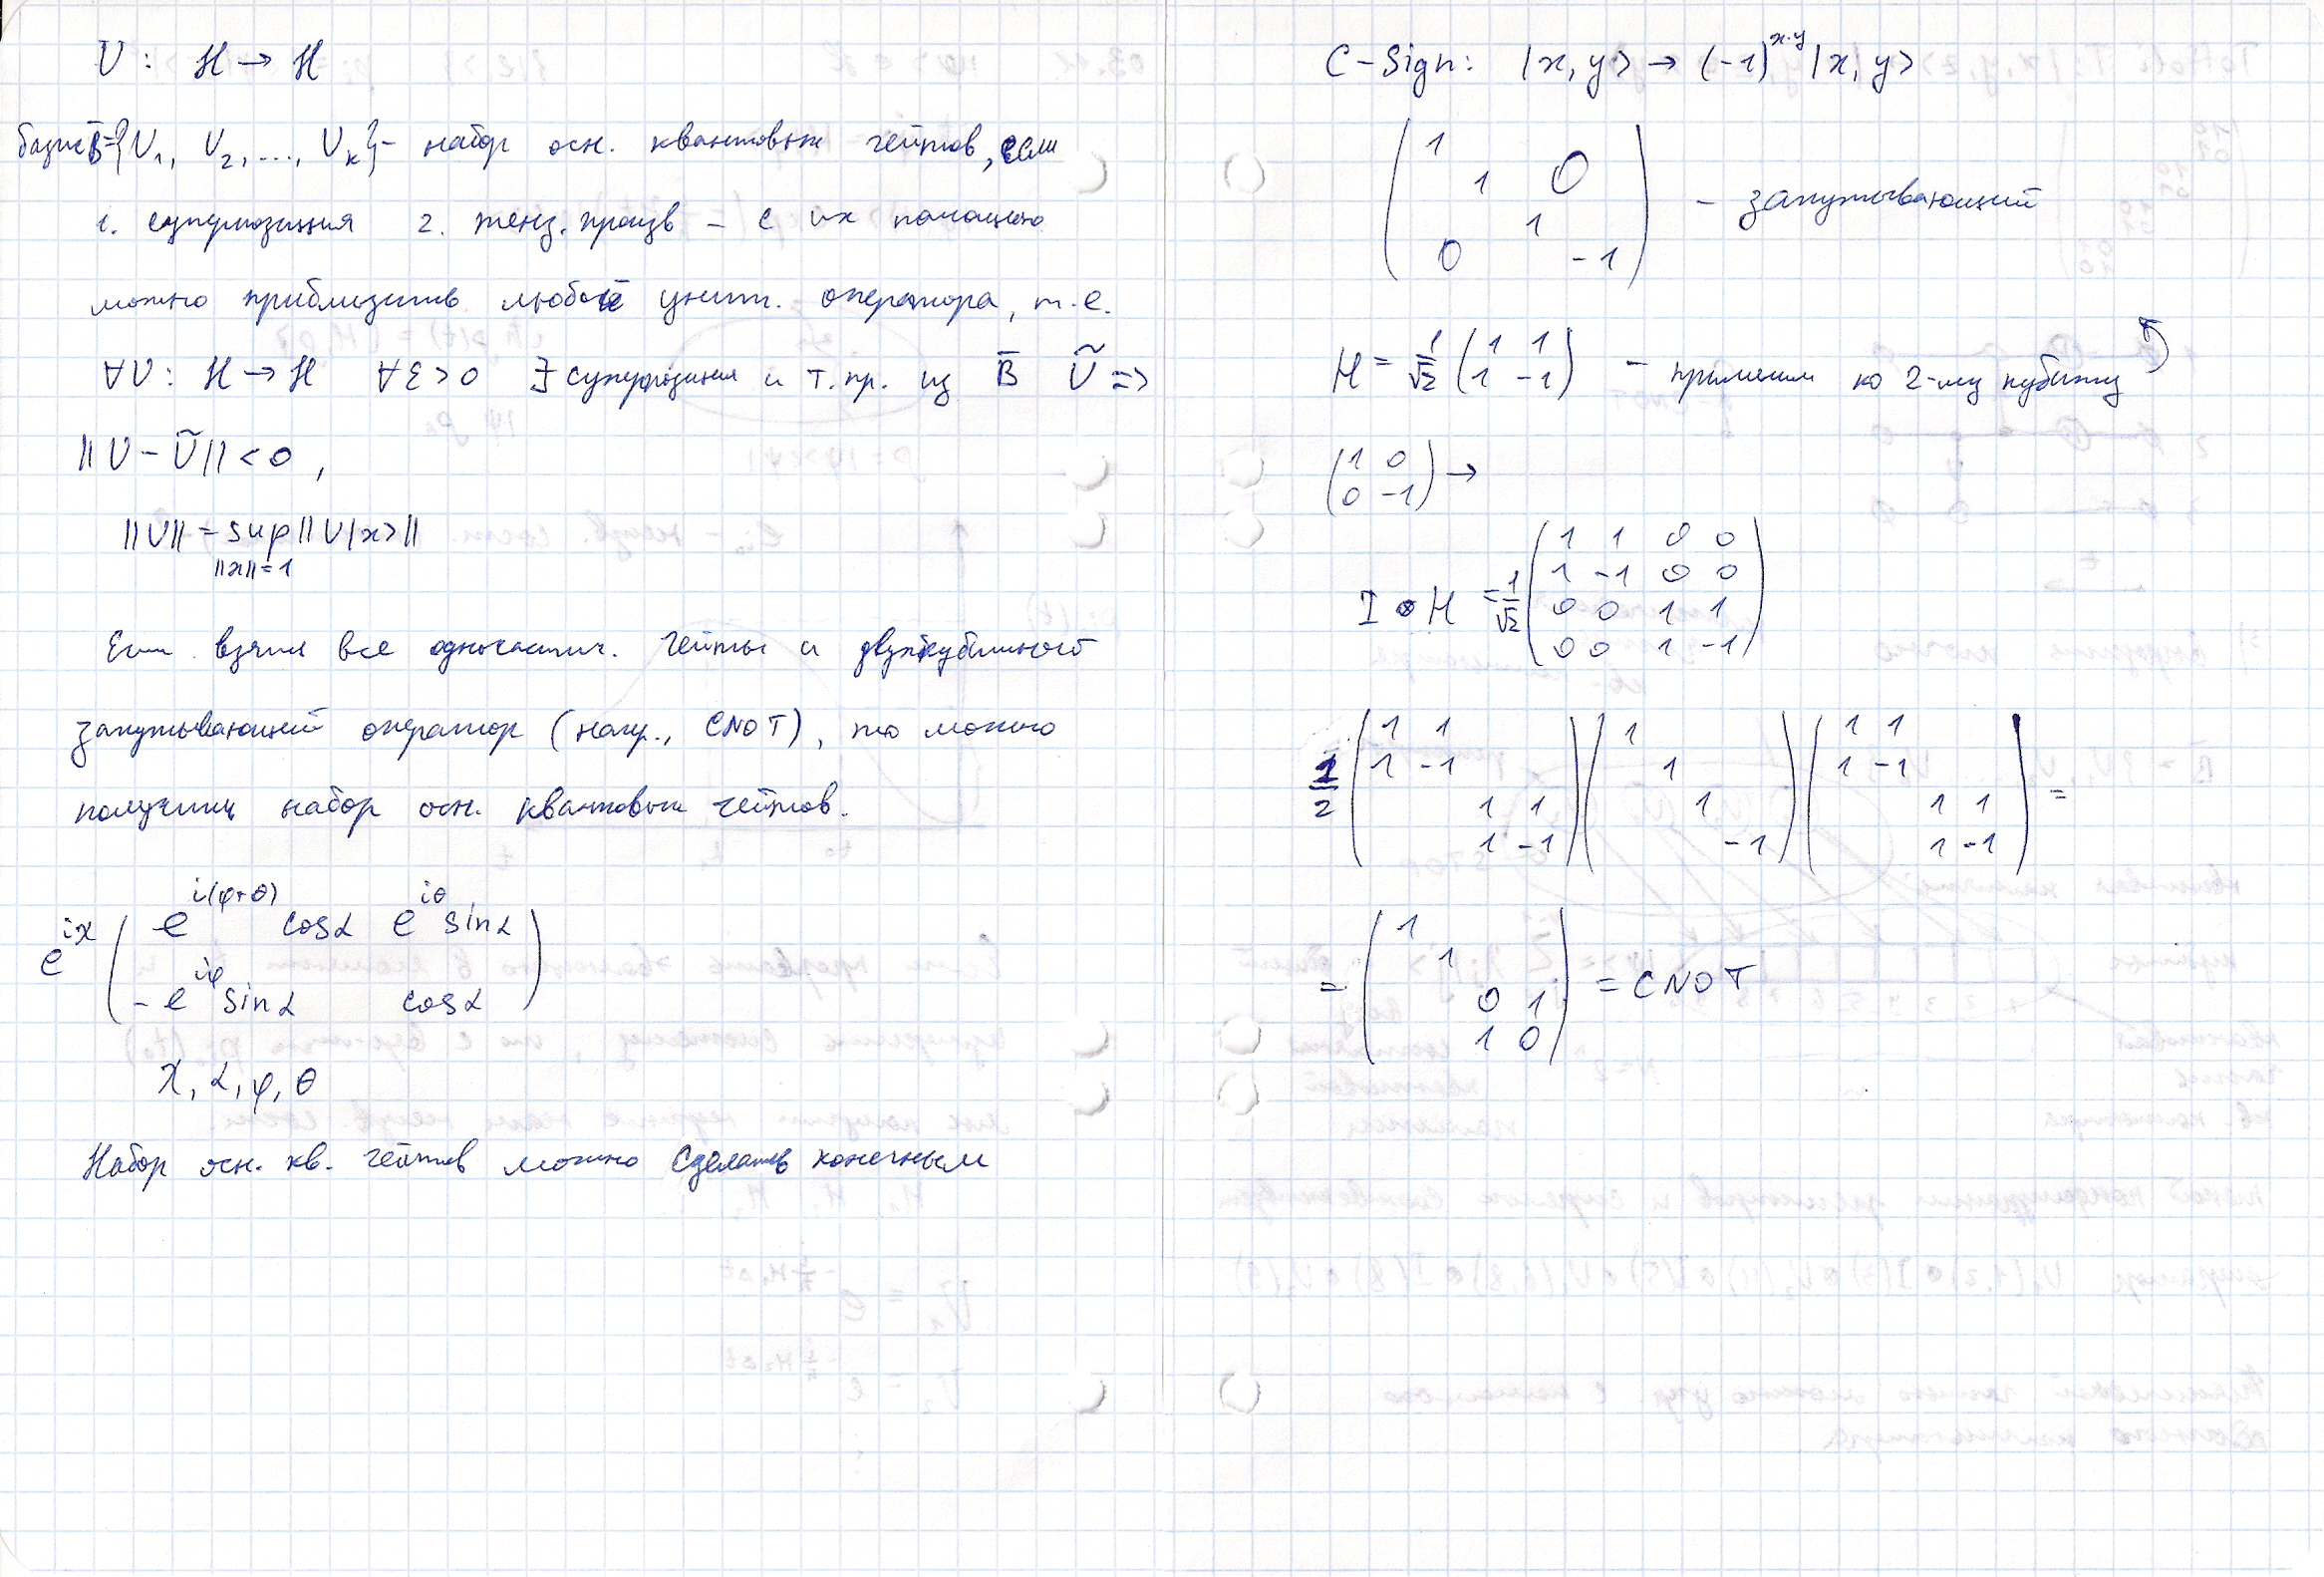 U : H → H
базис B̄={U₁, U₂, ..., Uₖ} - набор осн. квантовых гейтов, если
1. суперпозиция 2. тенз. произв - с их помощью
можно приблизить любой унит. оператора, т.е.
∀U : H → H ∀ε > 0 ∃ суперпозиция и т. пр. из B̄ Ũ =>
||U - Ũ|| < 0 ,
||U|| = sup ||U|x>||
||x||=1
Если взять все одночастич. гейты и двухкубитный
запутывающий оператор (напр., CNOT), то можно
получить набор осн. квантовых гейтов.
e^{ix} ( e^{i(φ+θ)} cosα e^{iθ} sinα
-e^{iφ} sinα cosα )
χ, α, φ, θ
Набор осн. кв. гейтов можно сделать конечным
C-Sign: |x, y> → (-1)^{x·y} |x, y>
( 1
1 0
1
0 -1 ) - запутывающий
H = 1/√2 ( 1 1
1 -1 ) - применим ко 2-му кубиту
( 1 0
0 -1 ) →
I ⊗ H = 1/√2 ( 1 1 0 0
1 -1 0 0
0 0 1 1
0 0 1 -1 )
1/2 ( 1 1
1 -1
1 1
1 -1 ) ( 1
1
1
-1 ) ( 1 1
1 -1
1 1
1 -1 ) =
= ( 1
1
0 1
1 0 ) = CNOT